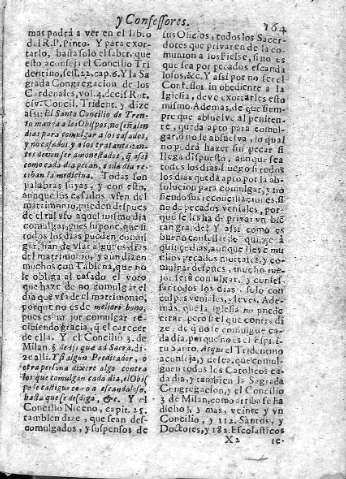 y Confessores. 164
mas podrá a ver en el libro
del R. P. Pinto. Y para exor-
tarlo, basta solo el saber, que
esto aconseja el Concilio Tri
dentino, sess. 22. cap. 6. Y la Sa
grada Congregacion de los
Cardenales, vol. 4. dec.
Concil. Trident. y dize
assi: El Santo Concilio de Tren-
to manda a los Obispos, no señalen
dias para comulgar a los casados,
y no casados y a los tratantes: an-
tes deuen ser amonestados, que assi
como cada dia pecan, cada dia re-
ciban la medicina. Todas son
palabras suyas, y con esto,
aunque los casados vsen del
matrimonio, pueden despues
de el tal vso aquel mismo dia
comulgar, pues supone, que si
todos los dias pueden comul-
gar, han de vsar a
del matrimonio, y aun dizen
muchos con Tabiena, que no
le obliga al casado el voto
que haze de no comulgar el
dia que vsa de el matrimonio,
porque no es de meliore bono,
pues es mejor comulgar re-
cibiendo gracia, que carecer
de ella. Y el Concilio 3. de
Milan. § de sacra, di-
ze assi. Y si algun Predicador, o
otra persona dixere algo contra
los que comulgan cada dia, el Obis
po le castigue
hasta que se desdiga, &c. Y el
Concilio Niceno, capit. 25.
tambien dize, que sean des-
comulgados, y suspensos de
sus Oficios, todos los Sacer-
dotes que priuaren de la co-
munion a los Fieles, sino es
que sea por pecados escanda
losos, &c. Y assi por no ser el
Confessor inobediente a la
Iglesia, deue exortarles esto
mismo. Ademas, que siempre
que absuelue al peniten-
te, queda apto para comul-
gar, ò no le absoluió, lo qual
no podrá hazer sin pecar si
llega dispuesto, aunque sea
todos los dias: luego si todos
los dias queda apto por la ab-
solucion para comulgar, y
siendo sus reconciliaciones, si
no de pecados veniales, por
que se les ha de priuar vn bien
tan grande? Y assi como es
buen consejo
quinze dias, aunque lleue mu
chos pecados mortales, y co-
mulgar despues, mucho me-
jor será comulgar, y confes-
sar todos los dias, solo con
culpas veniales, y leues. Ade-
más, que la Iglesia no puede
errar, pero si el que contradi-
ze, de que no se comulgue ca-
da dia, porque no es el Espi-
ritu Santo. Arguo: el Trident. no
aconseja, y desea, que comul-
guen todos los Catolicos ca-
da dia, y tambien la Sagrada
Congregacion, y el Concilio
3 de Milan, como arriba se ha
dicho, y mas, veinte y vn
Concilio, y 112. Santos, y
Doctores, y 182. Escolasticos
X 2 le-